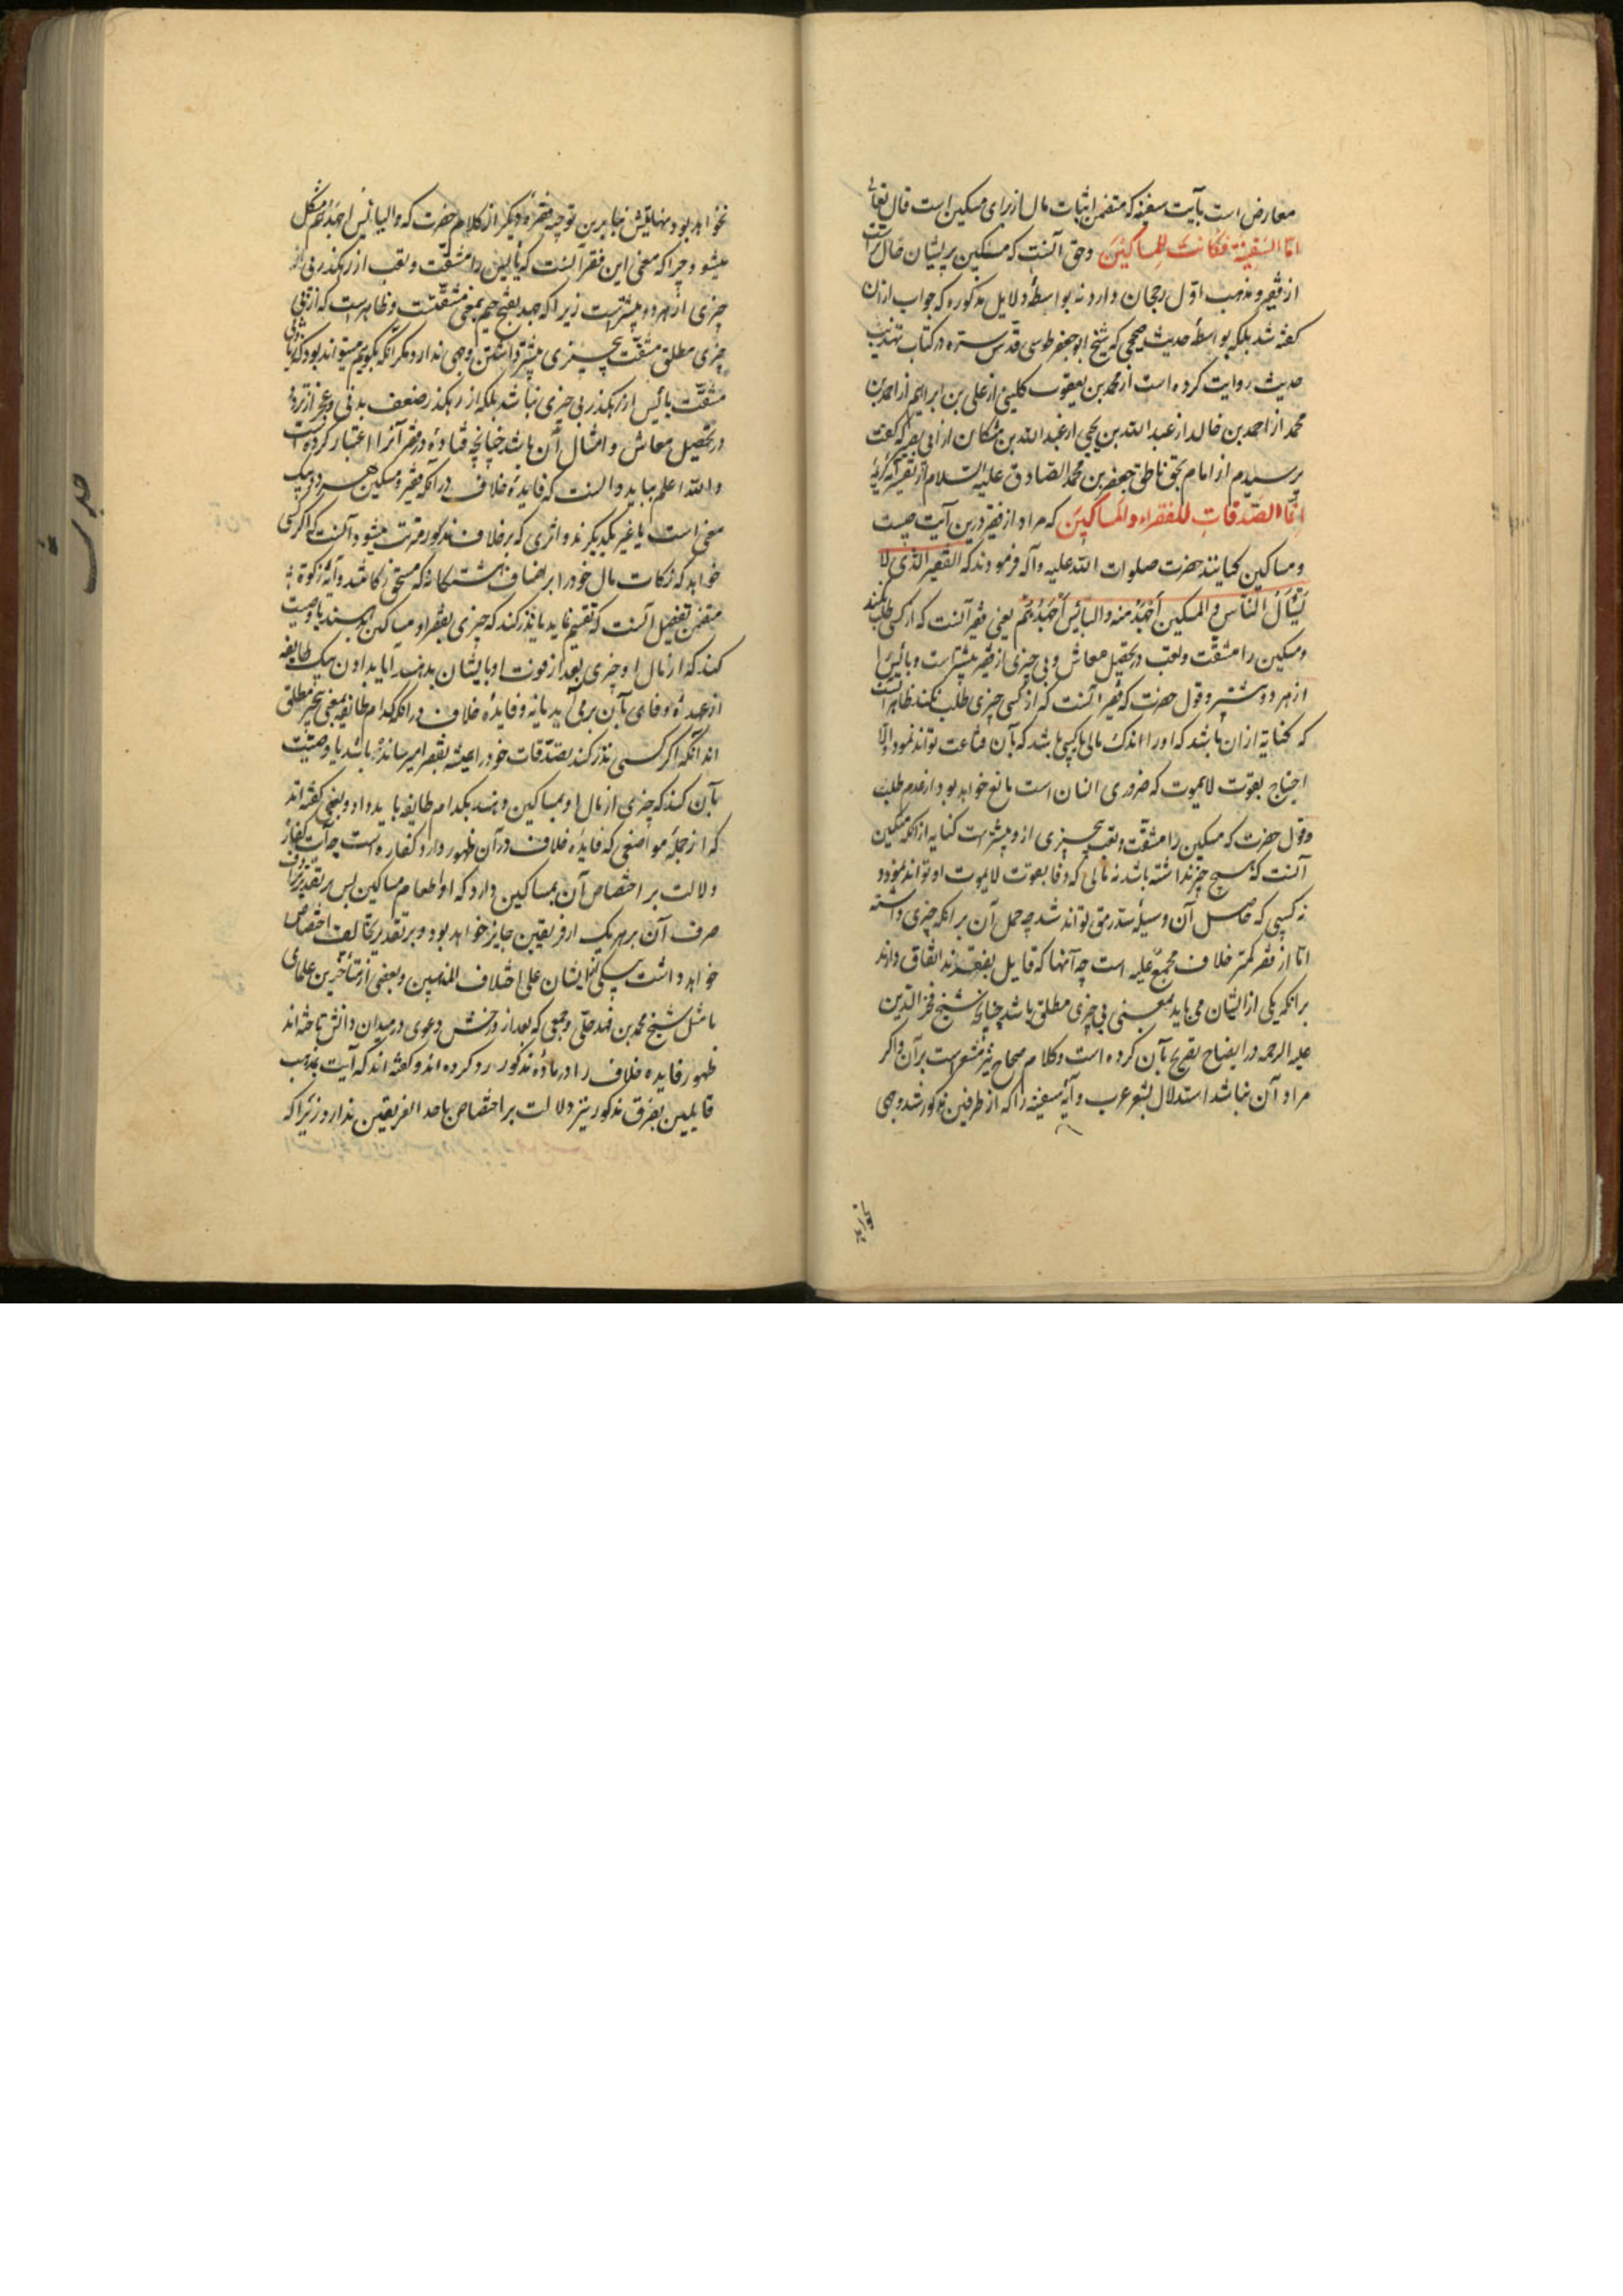 معارض است بآیت سفینه که متضمن اثبات مال از برای مسکین است قال تعالی
امّا السفینة فکانت للمساکین وحق آنست که مسکین پریشان حال تر است
از فقیر و مذهب اوّل رجحان دارد نه بواسطهٔ دلایل مذکوره که جواب از ان
گفته شد بلکه بواسطهٔ حدیث صحیحی که شیخ ابوجعفر طوسی قدس سره در کتاب تهذیب
حدیث روایت کرده است از محمد بن یعقوب کلینی از علی بن ابراهیم از احمد بن
محمد از احمد بن خالد از عبد الله بن یحیی از عبد الله بن مشکان از ابی بصیر که گفت
پرسیدم از امام بحق ناطق جعفر بن محمد الصادق علیه السلام از تفسیر آیه کریمهٔ
انّما الصّدقات للفقراء والمساکین که مراد از فقیر درین آیت چیست
و مساکین کیانند حضرت صلوات الله علیه وآله فرمودند که الفقیر الذی لا
یسأل الناس والمسکین أجهد منه والبائس أجهدهم یعنی فقیر آنست که از کسی طلب نکند
ومسکین را مشقّت وتعب در تحصیل معاش و بی چیزی از فقیر بیشتر است وبائس را
از هر دو بیشتر وقول حضرت که فقیر آنست که از کسی چیزی طلب نکند ظاهر آنست
که کنایة ازان باشد که اورا اندک مالی یا کسبی باشد که بآن قناعت تواند نمود والّا
احتیاج بقوت لایموت که ضروری انسان است مانع خواهد بود از عدم طلب
وقول حضرت که مسکین را مشقّت وتعب بیچیزی از و بیشتر است کنایه از انکه مسکین
آنست که هیچ چیز نداشته باشد نه مالی که وفا بقوت لایموت او تواند نمود و
نه کسبی که حاصل آن وسیلهٔ سدّ رمق تواند شد چه حمل آن بر انکه چیزی داشته
امّا از فقر کمتر خلاف مجمع علیه است چه آنها که قایل بفرقند اتفاق دارند
بر انکه یکی از ایشان می باید بمعنی بی چیزی مطلق باشد چنانچه شیخ فخر الدین
علیه الرحمه در ایضاح تصریح بآن کرده است وکلام صحاح نیز مشعر است بر آن واگر
مراد آن نباشد استدلال بشعر عرب وآیهٔ سفینه را که از طرفین مذکور شد وجهی
نخواهد
نخواهد بود نهایتش بنابرین توجیه فقرهٔ دیگر از کلام حضرت که والبائس اجهدهم مشکل
میشود چراکه معنی این فقره آنست که بایس را مشقّت وتعب از رهکذر بی
چیزی از هر دو بیشتر است زیراکه جهد بفتح جیم بمعنی مشقّتست وظاهر است که از بی
چیزی مطلق مشقّت بیچیزی بیشتر داشتن وجهی ندارد مگر انکه بگوییم میتواند بود که
مشقّت بائس از رهکذر بی چیزی نباشد بلکه از رهکذر ضعف بدنی وعجز از تردد
در تحصیل معاش وامثال آن باشد چنانچه قتاده در فقر آنرا اعتبار کرده است
والله اعلم بباید دانست که فایدهٔ خلاف در آنکه فقیر ومسکین هر دو بیک
معنی است یا غیر یکدیگرند واثری که بر خلاف مذکور مترتب میشود آنست که اگر کسی
خواهد که زکات مال خود را بر اصناف هشتگانه که مستحق زکاتند وآیهٔ زکوة
متضمن تفصیل آنست که تقسیم نماید یا نذر کند که چیزی بفقرا و مساکین دهد یا وصیت
کند که از مال او چیزی بعد از فوت او بایشان بدهند آیا بدادن بیک طایفه
از عهدهٔ وفای بآن برمی آید یا نه وفایدهٔ خلاف در انکه کدام طایفه بمعنی بیچیز مطلق
اند آنکه اگر کسی نذر کند بصدقات خود را همیشه بفقرا میرسانده باشد یا وصیّت
بآن کند که چیزی از مال او بمساکین دهند بکدام طایفه باید داد وبعضی گفته اند
که از جملهٔ مواضعی که فایدهٔ خلاف در آن ظهور دارد کفاره است چه آیت کفاره
دلالت بر اختصاص آن بمساکین دارد که او اطعام مساکین پس بر تقدیر ترادف
صرف آن بر هر یک از فریقین جایز خواهد بود وبر تقدیر تخالف اختصاص
خواهد داشت بیکی از ایشان علی اختلاف المذهبین وبعضی از متأخرین علمای
ما مثل شیخ محمد بن فهد حلّی وجمعی که بعد از و رخش دعوی در میدان دانش تاخته اند
ظهور فایده خلاف را در مادّهٔ مذکور رد کرده اند و گفته اند که آیت بمذهب
قایلین بفرق مذکور نیز دلالت بر اختصاص باحد الفریقین ندارد زیراکه